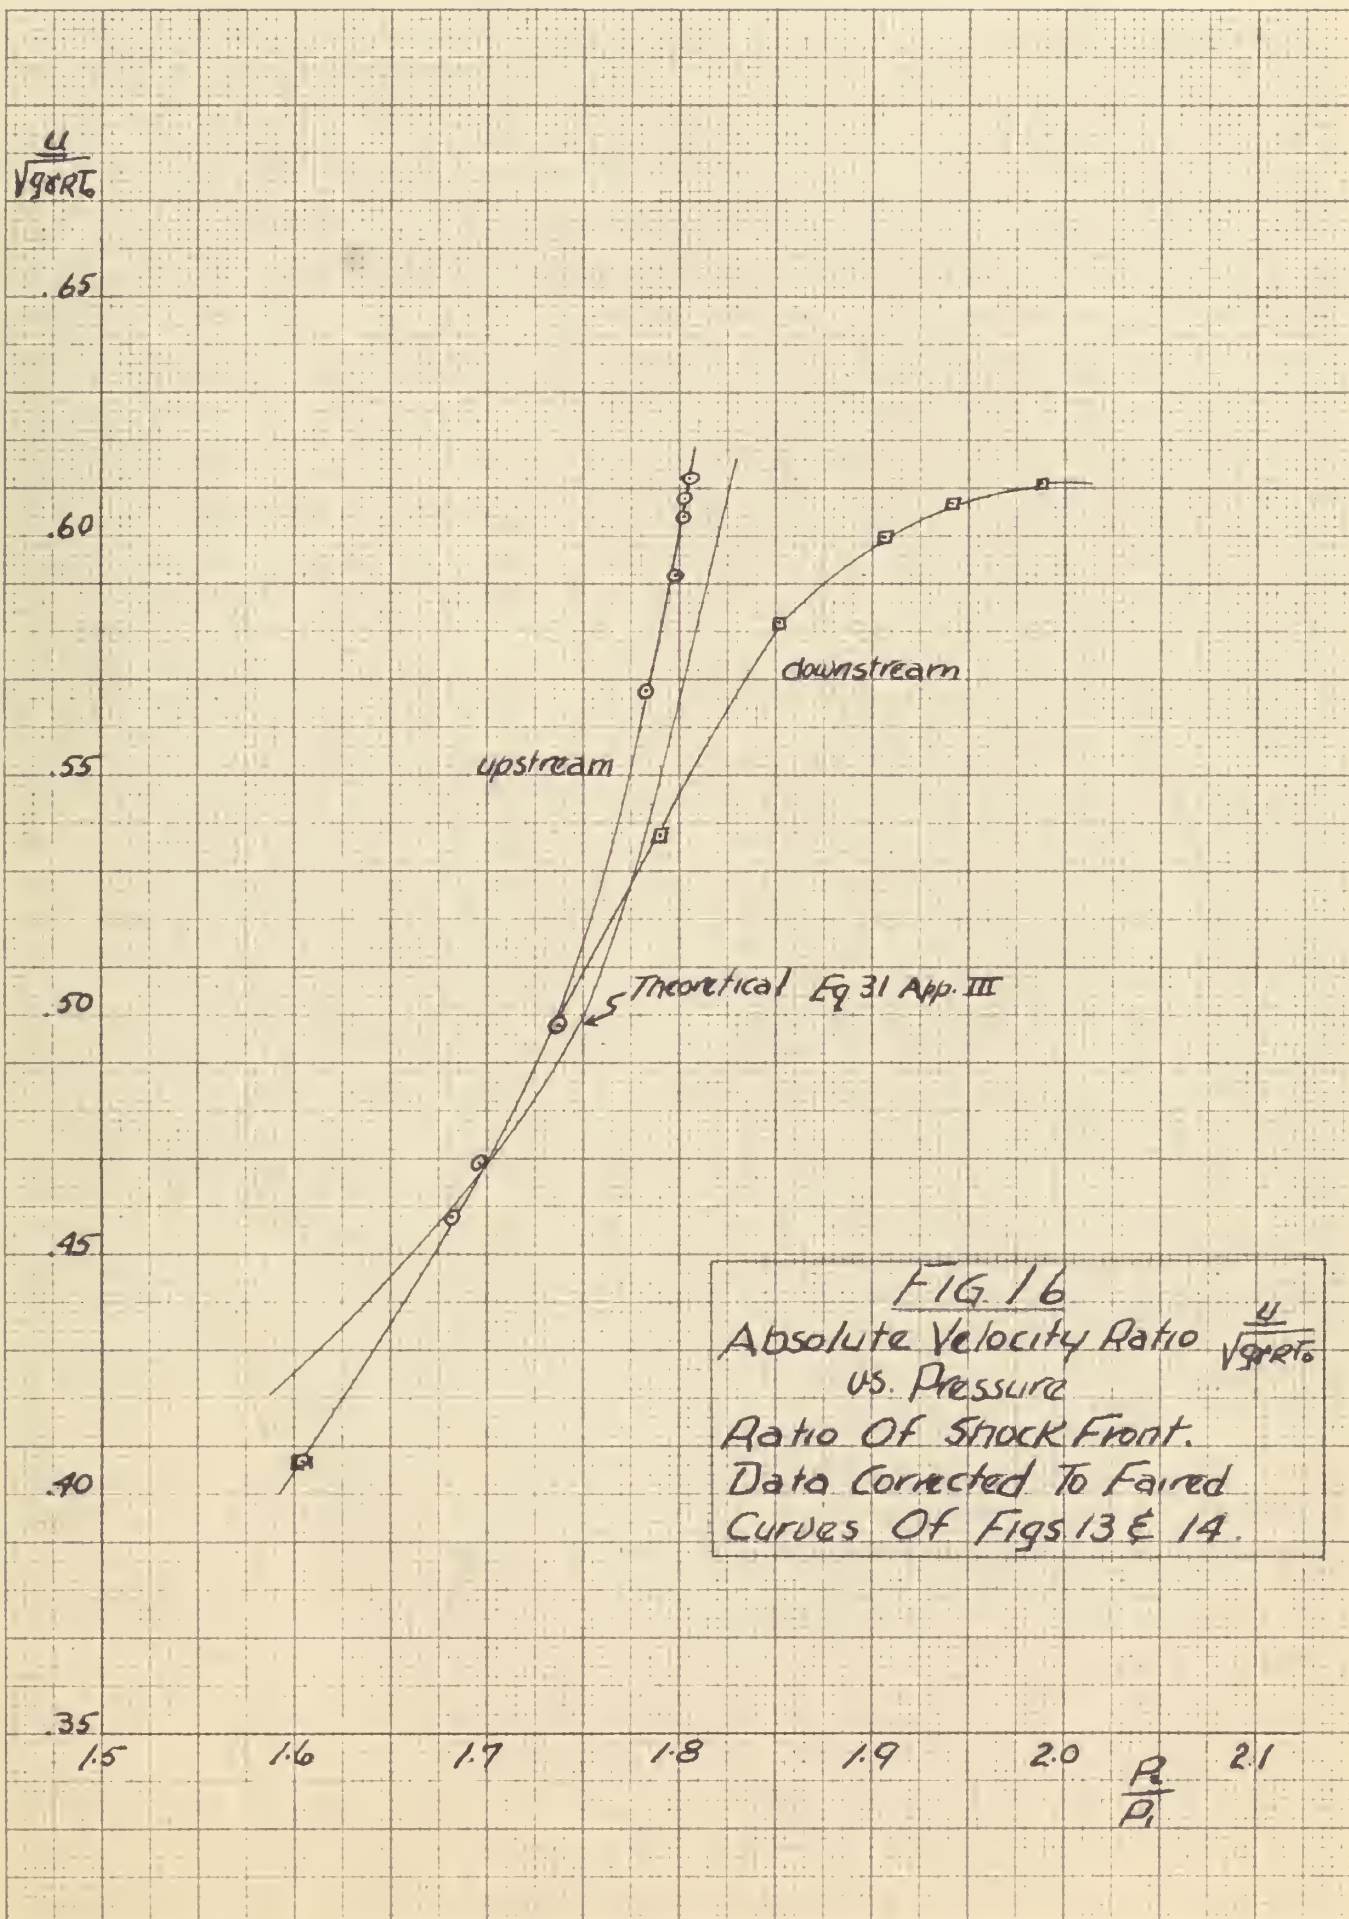 u
√gγRT₀
.65
.60
downstream
.55
upstream
.50
Theoretical Eq 31 App. III
.45
FIG. 16
Absolute Velocity Ratio u
√gγRT₀
vs. Pressure
Ratio Of Shock Front.
Data Corrected To Faired
Curves Of Figs 13 & 14.
.40
.35
1.5 1.6 1.7 1.8 1.9 2.0 2.1
P₂
P₁